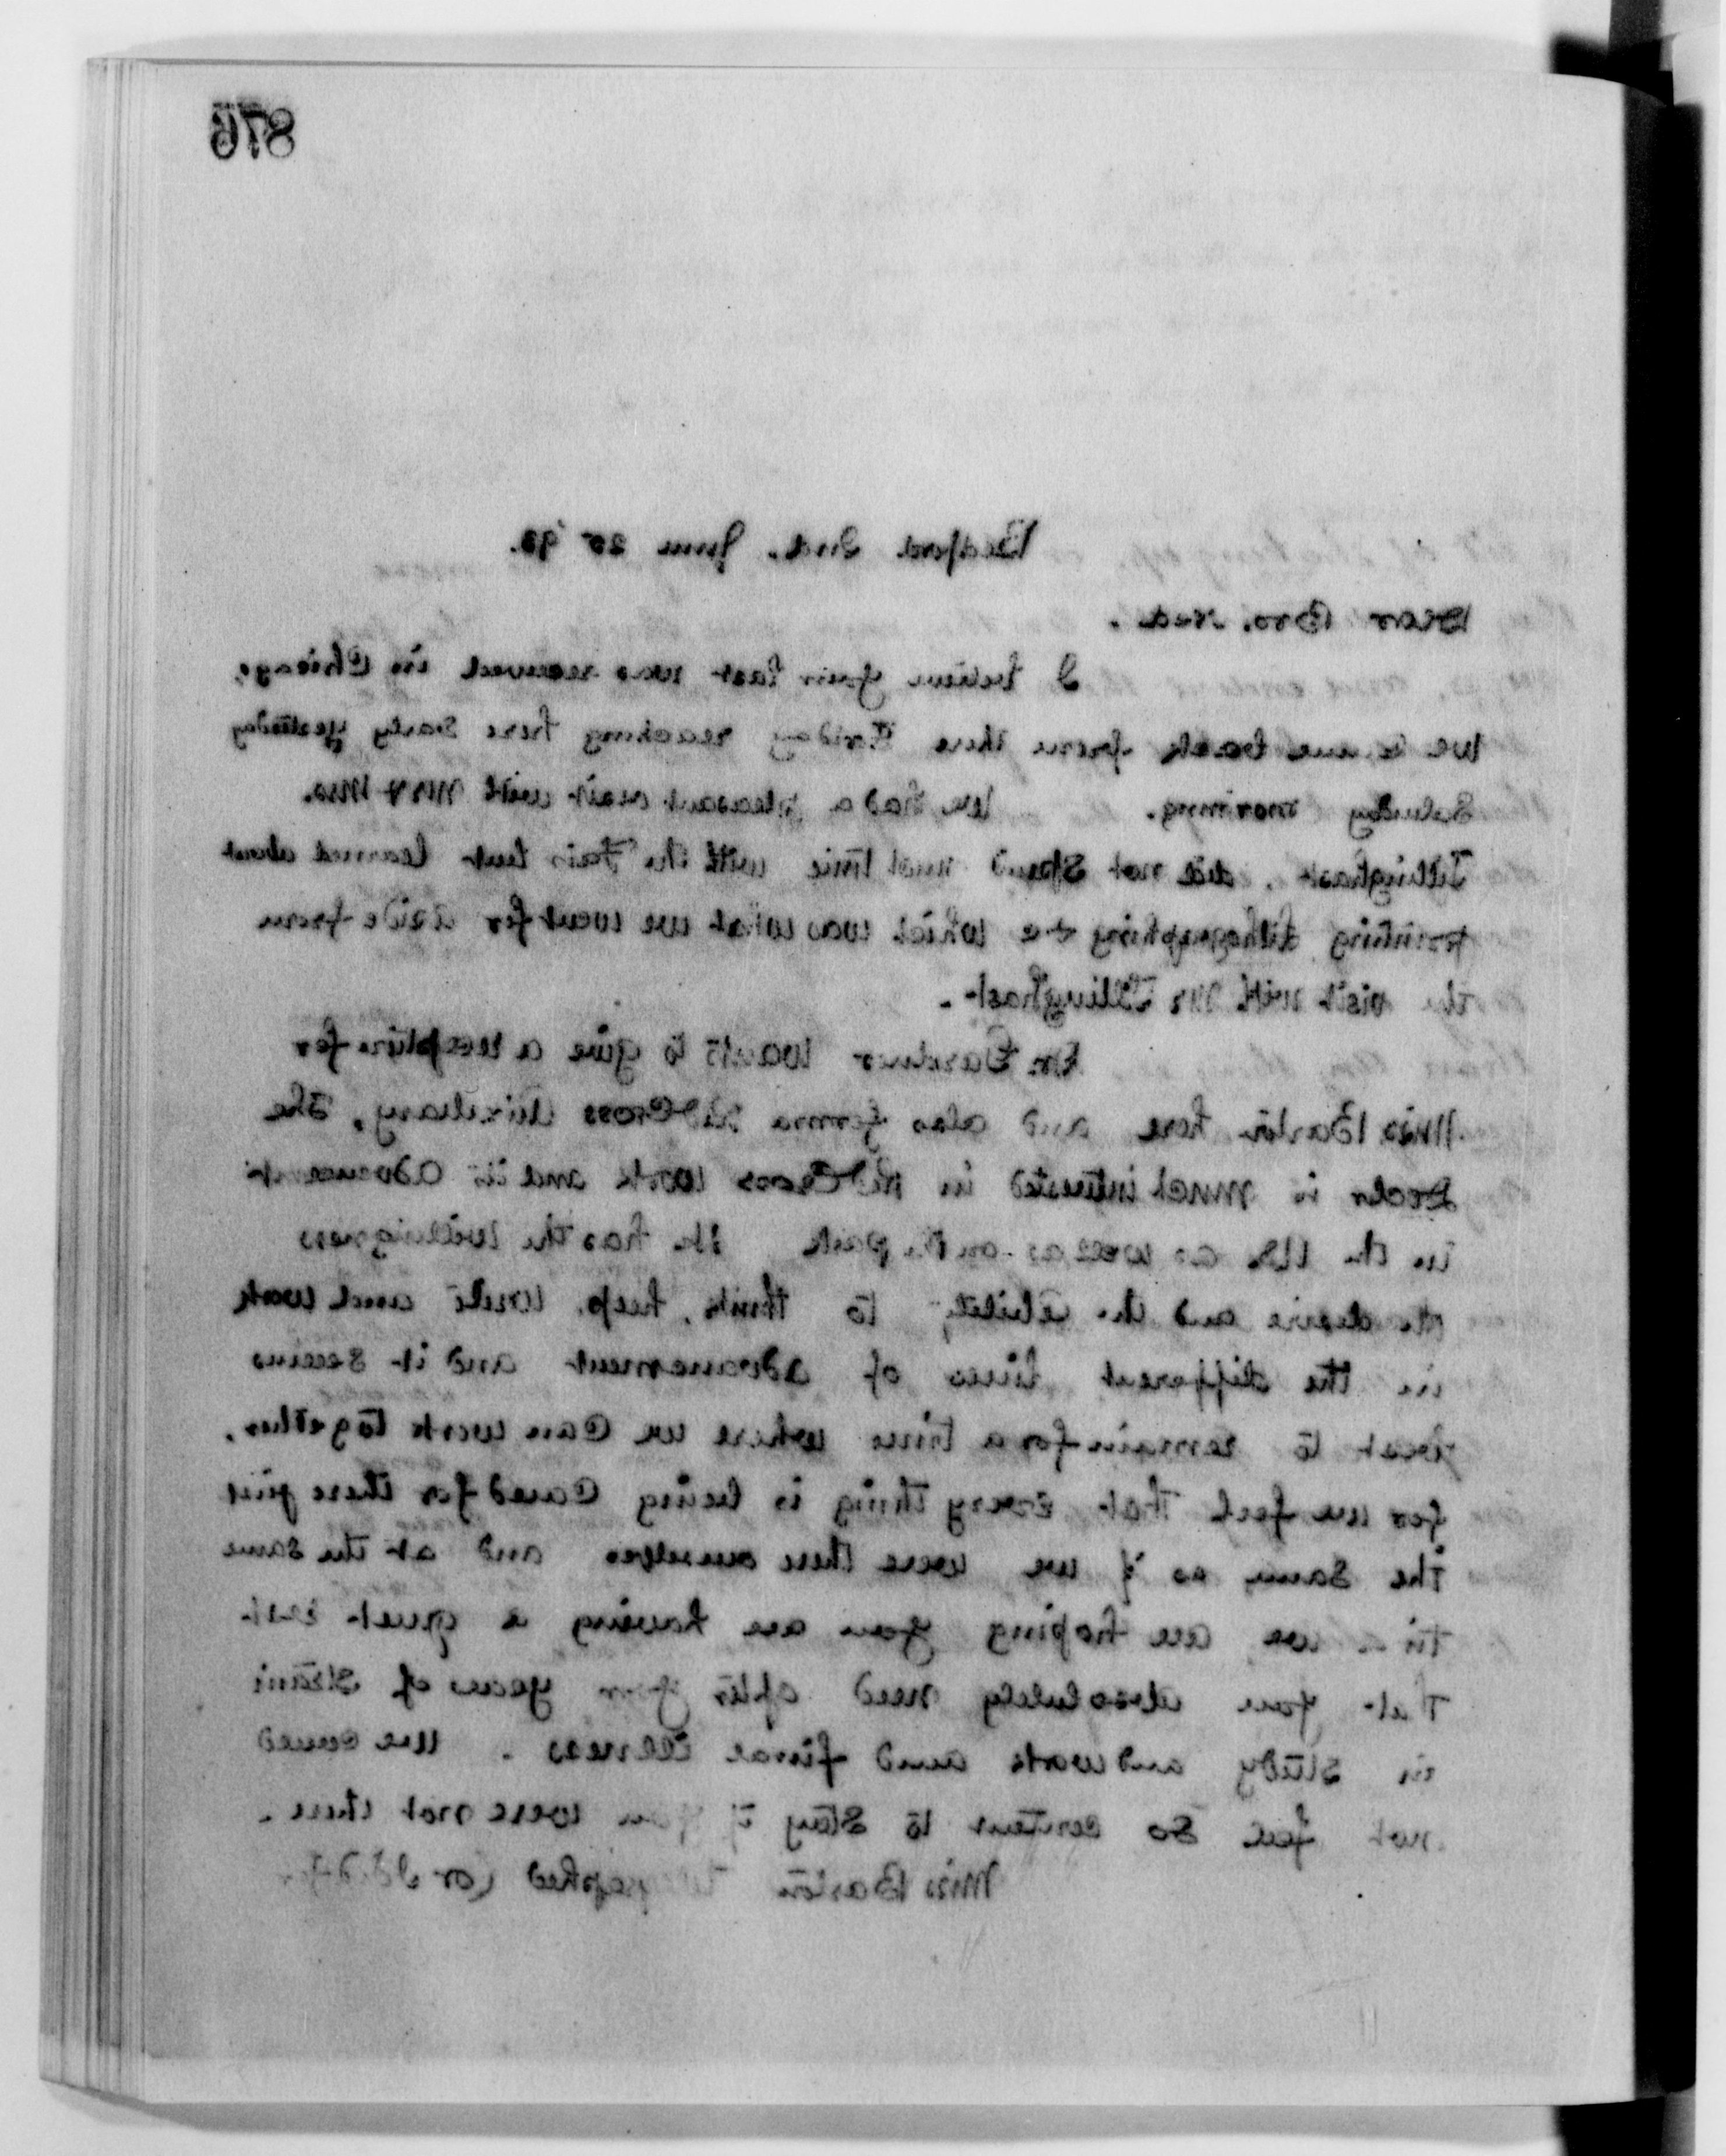 876
Bedford Ind. June 25 '93.
Dear Bro. Ned.
I believe your last was received in Chicago.
We came back from there Friday reaching here early yesterday
Saturday morning. We had a pleasant visit with Mr & Mrs.
Tillinghast, did not spend much time with the Fair but learned about
printing lithographing &c which was what we went for aside from
the visit with Mr Tillinghast.
Dr. Gardner wants to give a reception for
Miss Barton here and also form a Red Cross Auxiliary, the
Doctor is much interested in Red Cross work and its advancement
in the US. as well as on the park He has the willingness
the desire and the ability to think, help, write and work
in the different lines of advancement and it seems
best to remain for a time where we can work together,
for we feel that every thing is being cared for there just
the same as if we were there ourselves and at the same
time we are hoping you are having a quiet rest
that you absolutely need after your years of strain
in study and work and final illness. We could
not feel so content to stay if you were not there.
Miss Barton telegraphed (or I did for